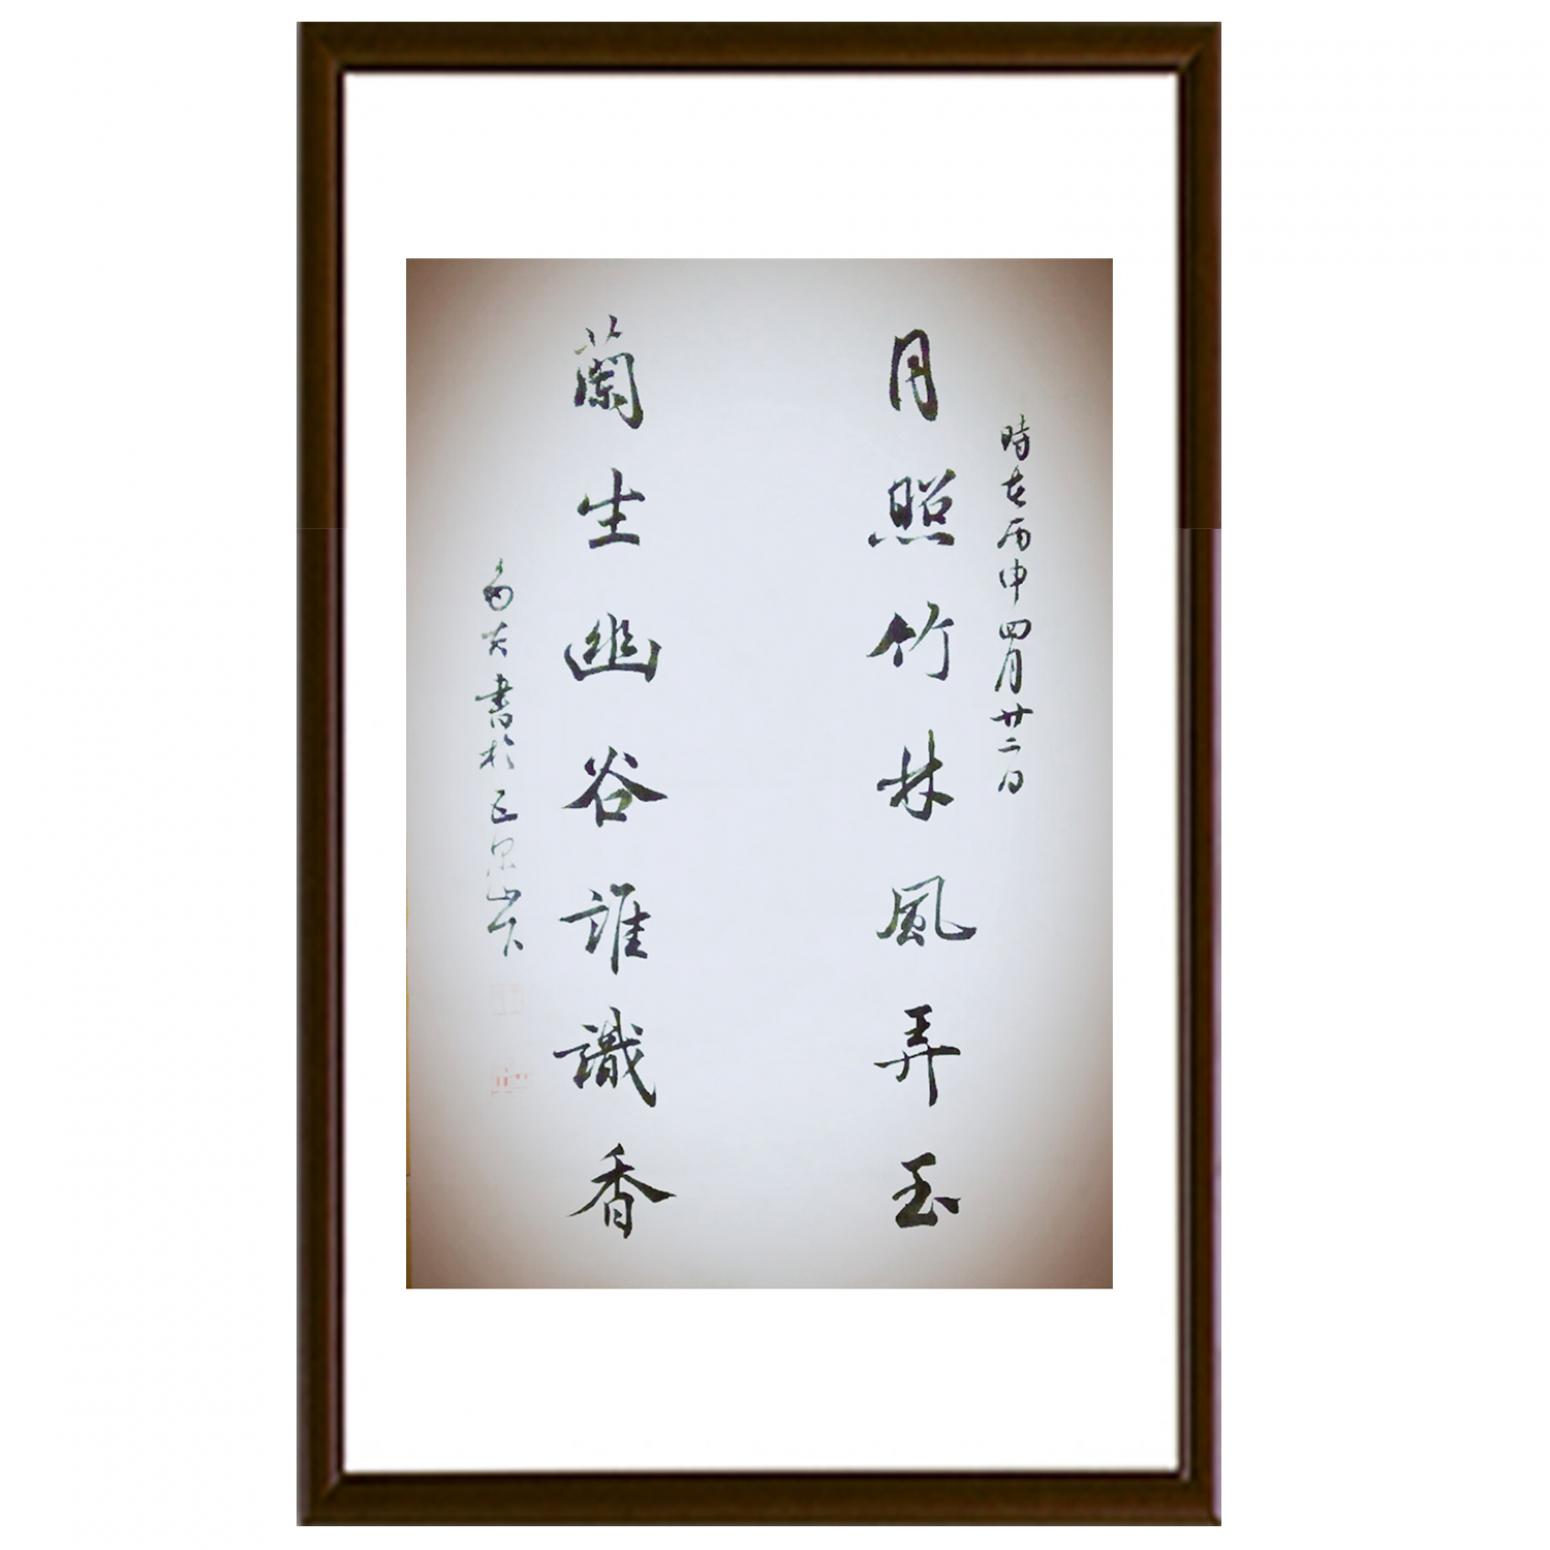 時在丙申四月廿二日
月照竹林風弄玉
蘭生幽谷誰識香
書於 山下